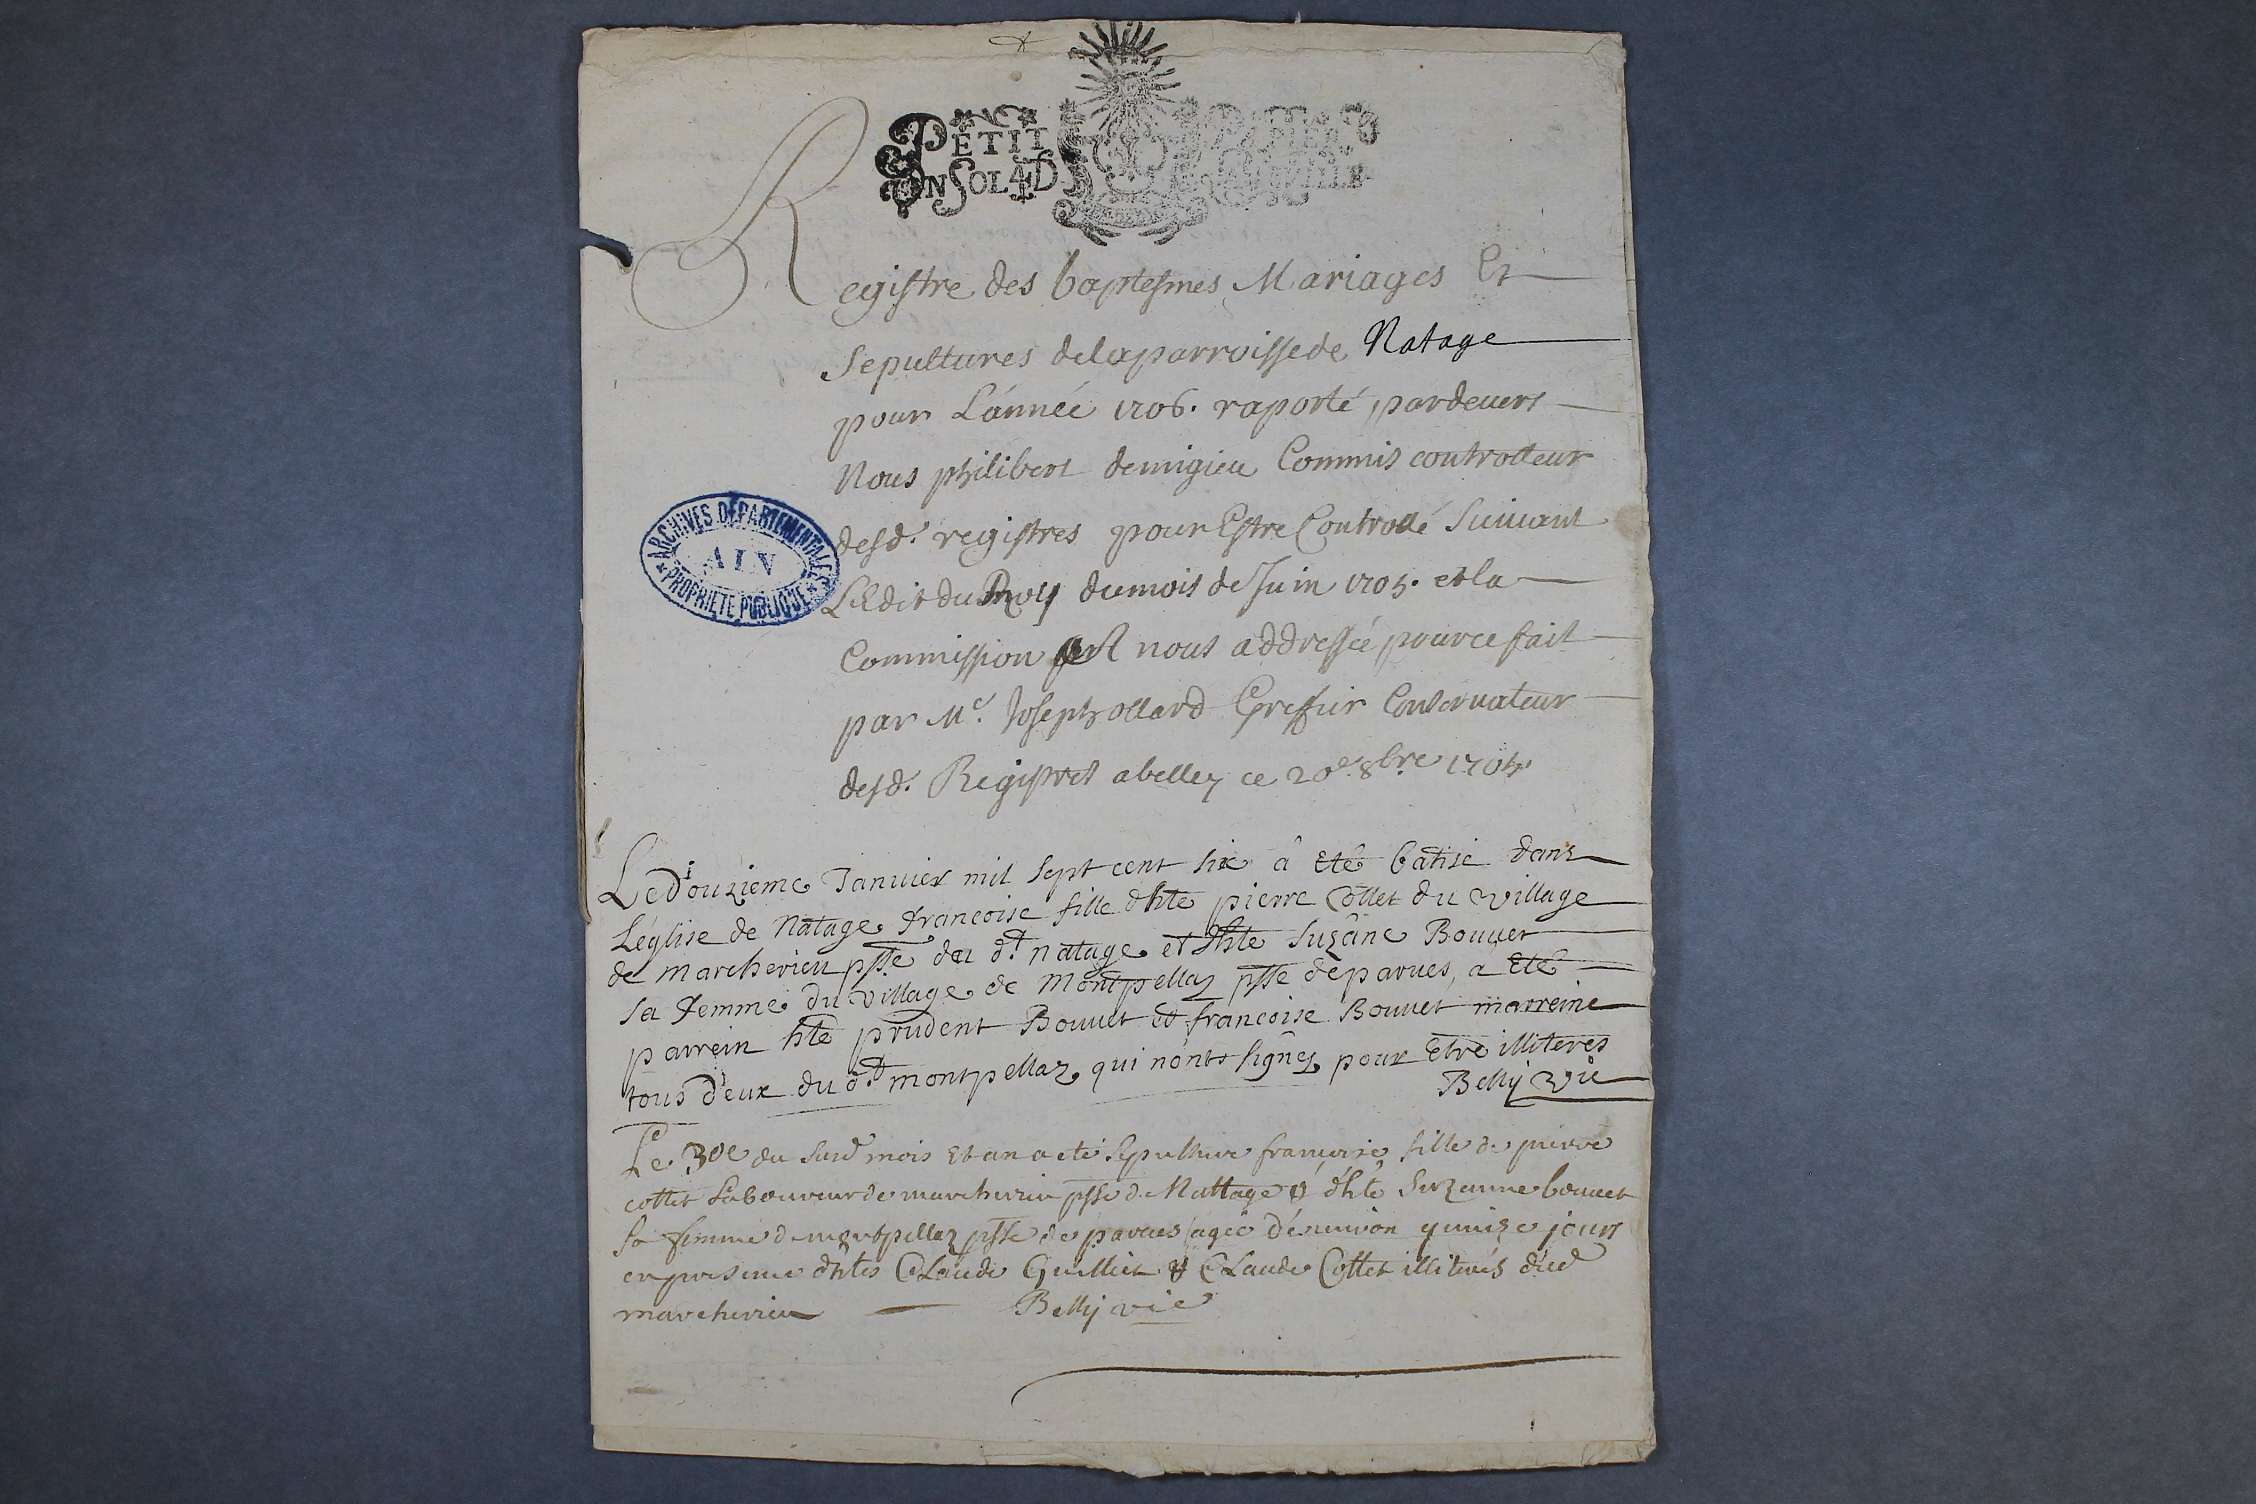 PETIT PAPIER
UN SOL 4 D
Registre des baptesmes Mariages Et
Sepultures de la parroisse de Natage
pour L'année 1706. raporté pardevers
Nous philibert demigieu Commis controlleur
desd. registres pour Estre Controllé Suivant
L'Edit du Roy du mois de Juin 1705. et la
Commission nous addressée pour ce fait
par Me. Joseph ollard Greffier Conservateur
desd. Registres a belley ce 20e 8bre 1705
ARCHIVES DÉPARTEMENTALES
AIN
PROPRIÉTÉ PUBLIQUE
Le douzieme Janvier mil sept cent six â eté batisé dans
L'église de Natage francoise fille d'hte pierre Collet du village
de marcherieu psse du dt natage et d'hte Suzâne Bouvet
sa femme du village de Montpellaz psse de parves, a eté
parrein hte prudent Bouvet et francoise Bouvet marreine
tous deux du dt montpellaz qui n'onts signez pour etre illiteres
Belly vic
Le 30e du susd mois Et an a eté Sepulture françoise fille de pierre
collet Laboureur de marcherieu psse de Nattage & d'hte Suzanne bouvet
sa femme de montpellaz psse de parves agée d'environ quinze jours
en presence d'htes Claude Guilliet & Claude Collet illiterés dud
marcherieu Belly vic